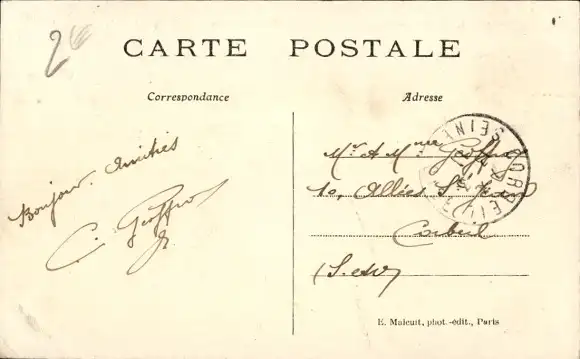 2
CARTE POSTALE
Correspondance
Adresse
Bonjour. Amitiés
C. Geoffroy
Mr & Mme Geoffroy
10, Allées St Jean
Corbeil
(S. & O.)
CORBEIL
SEINE
E. Malcuit, phot.-édit., Paris